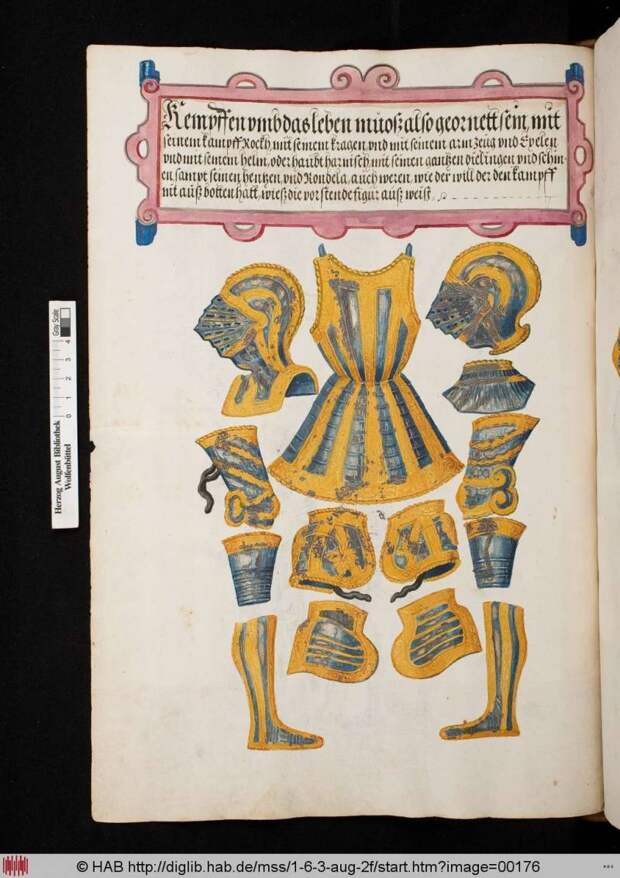 Kempffen vmb das leben muoß also geornett sein, mit
seinem kampff Rockh, mit seinem kragen vnd mit seinem arm zeug vnd
vnd mit seinem helm, oder haubt harnisch mit seinen gantzen dielingen vnd schin-
en sampt seinen hentzen vnd Rondela, auch weren, wie der will der den kampff
mit auß botten hatt, wieß die vor stende figur auß weist
Herzog August Bibliothek
Wolfenbüttel
0 1 2 3 4
Grey Scale
© HAB http://diglib.hab.de/mss/1-6-3-aug-2f/start.htm?image=00176